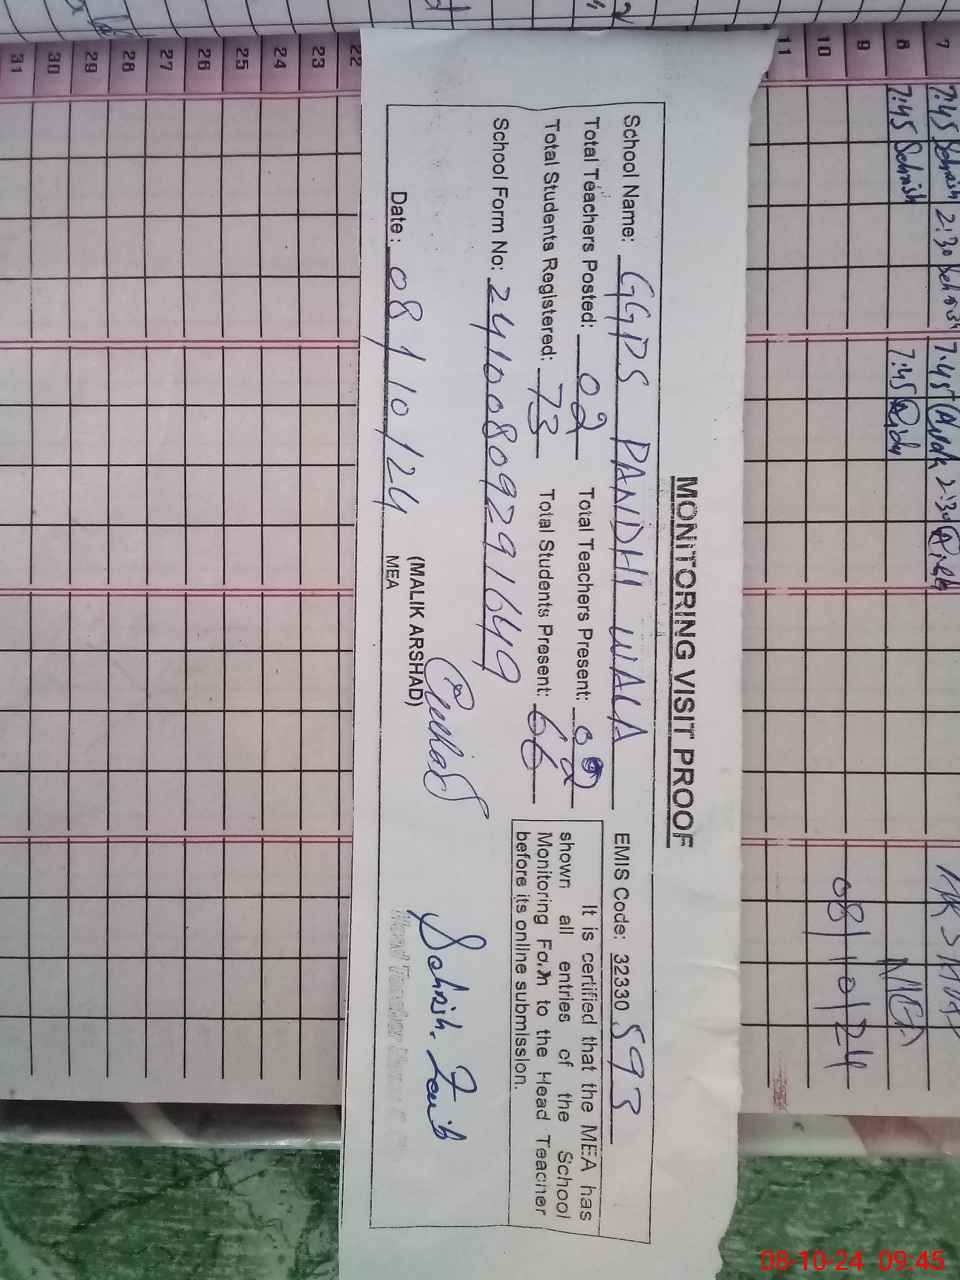 MONITORING VISIT PROOF
School Name: GGPS PANDHI WALA EMIS Code: 32330 593
Total Teachers Posted: 02 Total Teachers Present: 02
Total Students Registered: 73 Total Students Present: 66
School Form No: 2410080929 1649
It is certified that the MEA has
shown all entries of the School
Monitoring Form to the Head Teacher
before its online submission.
Date: 08/10/24
(MALIK ARSHAD)
MEA
Sehrish
7 7:45 Sehrish 2:30 Sehrish 7:45 2:30
8 7:45 Sehrish 7:45
MEA
9
10 08/10/24
11
22
23
24
25
26
27
28
29
30
31
08-10-24 09:45